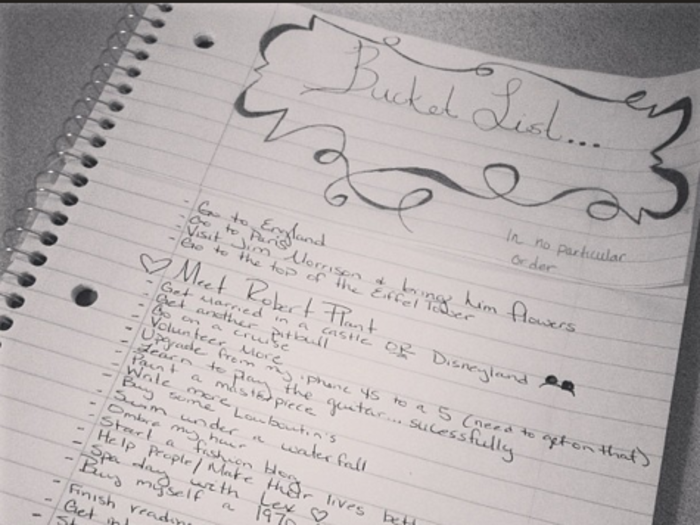 Bucket List...
In no particular
order
- Go to England
- Go to Paris
- Visit Jim Morrison & bring him flowers
- Go to the top of the Eiffel Tower
♡ Meet Robert Plant
- Get married in a castle OR Disneyland
- Get another pitbull
- Go on a cruise
- Volunteer more
- Upgrade from my iphone 4s to a 5 (need to get on that)
- Learn to play the guitar... sucessfully
- Paint a masterpiece
- Write more
- Buy some Louboutin's
- Swim under a waterfall
- Ombre my hair
- Start a fashion blog
- Help people/Make their lives
- Spa day with Lex ♡
- Buy myself a
- Finish reading
- Get